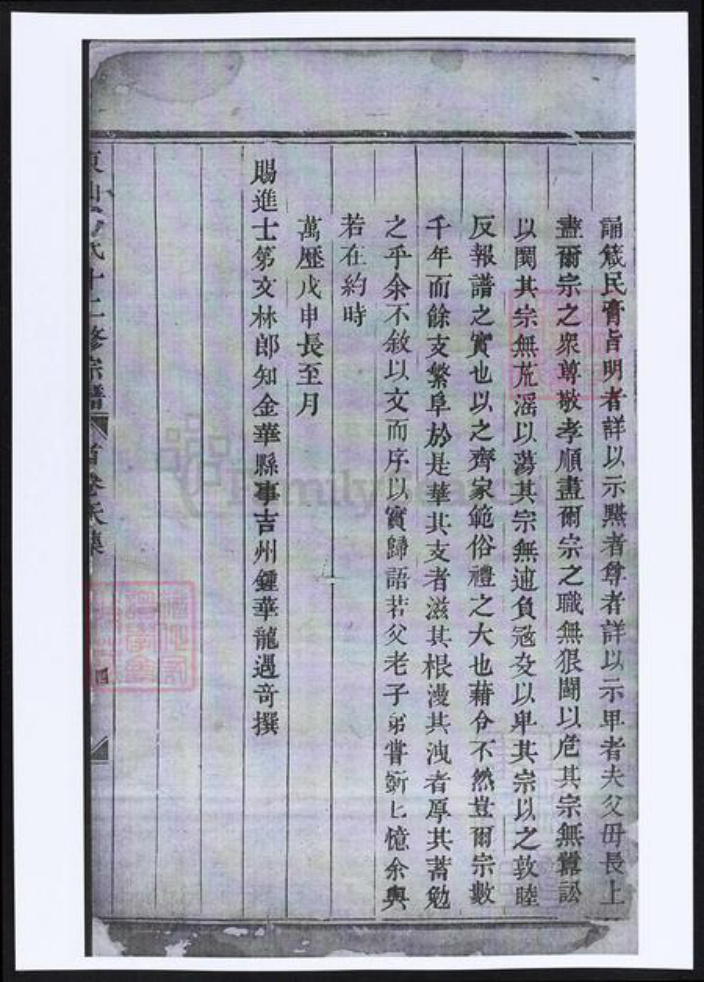 誦箴民膏旨明者詳以示黑者尊者詳以示卑者夫父毋長上
盡爾宗之衆尊敬孝順盡爾宗之職無狠鬪以危其宗無囂訟
以鬩其宗無荒滛以蕩其宗無逋負冦攻以卑其宗以之敦睦
反報譜之實也以之齊家範俗禮之大也藉令不然豈爾宗數
千年而餘支繁阜於是華其支者滋其根漫其洩者厚其蓄勉
之乎余不敘以文而序以實歸語若父老子弟嘗斬匕憶余與
若在約時
萬歷戊申長至月
賜進士第文林郎知金華縣事吉州鍾華龍遇奇撰
氏十二修宗譜 首卷
四
FamilySearch